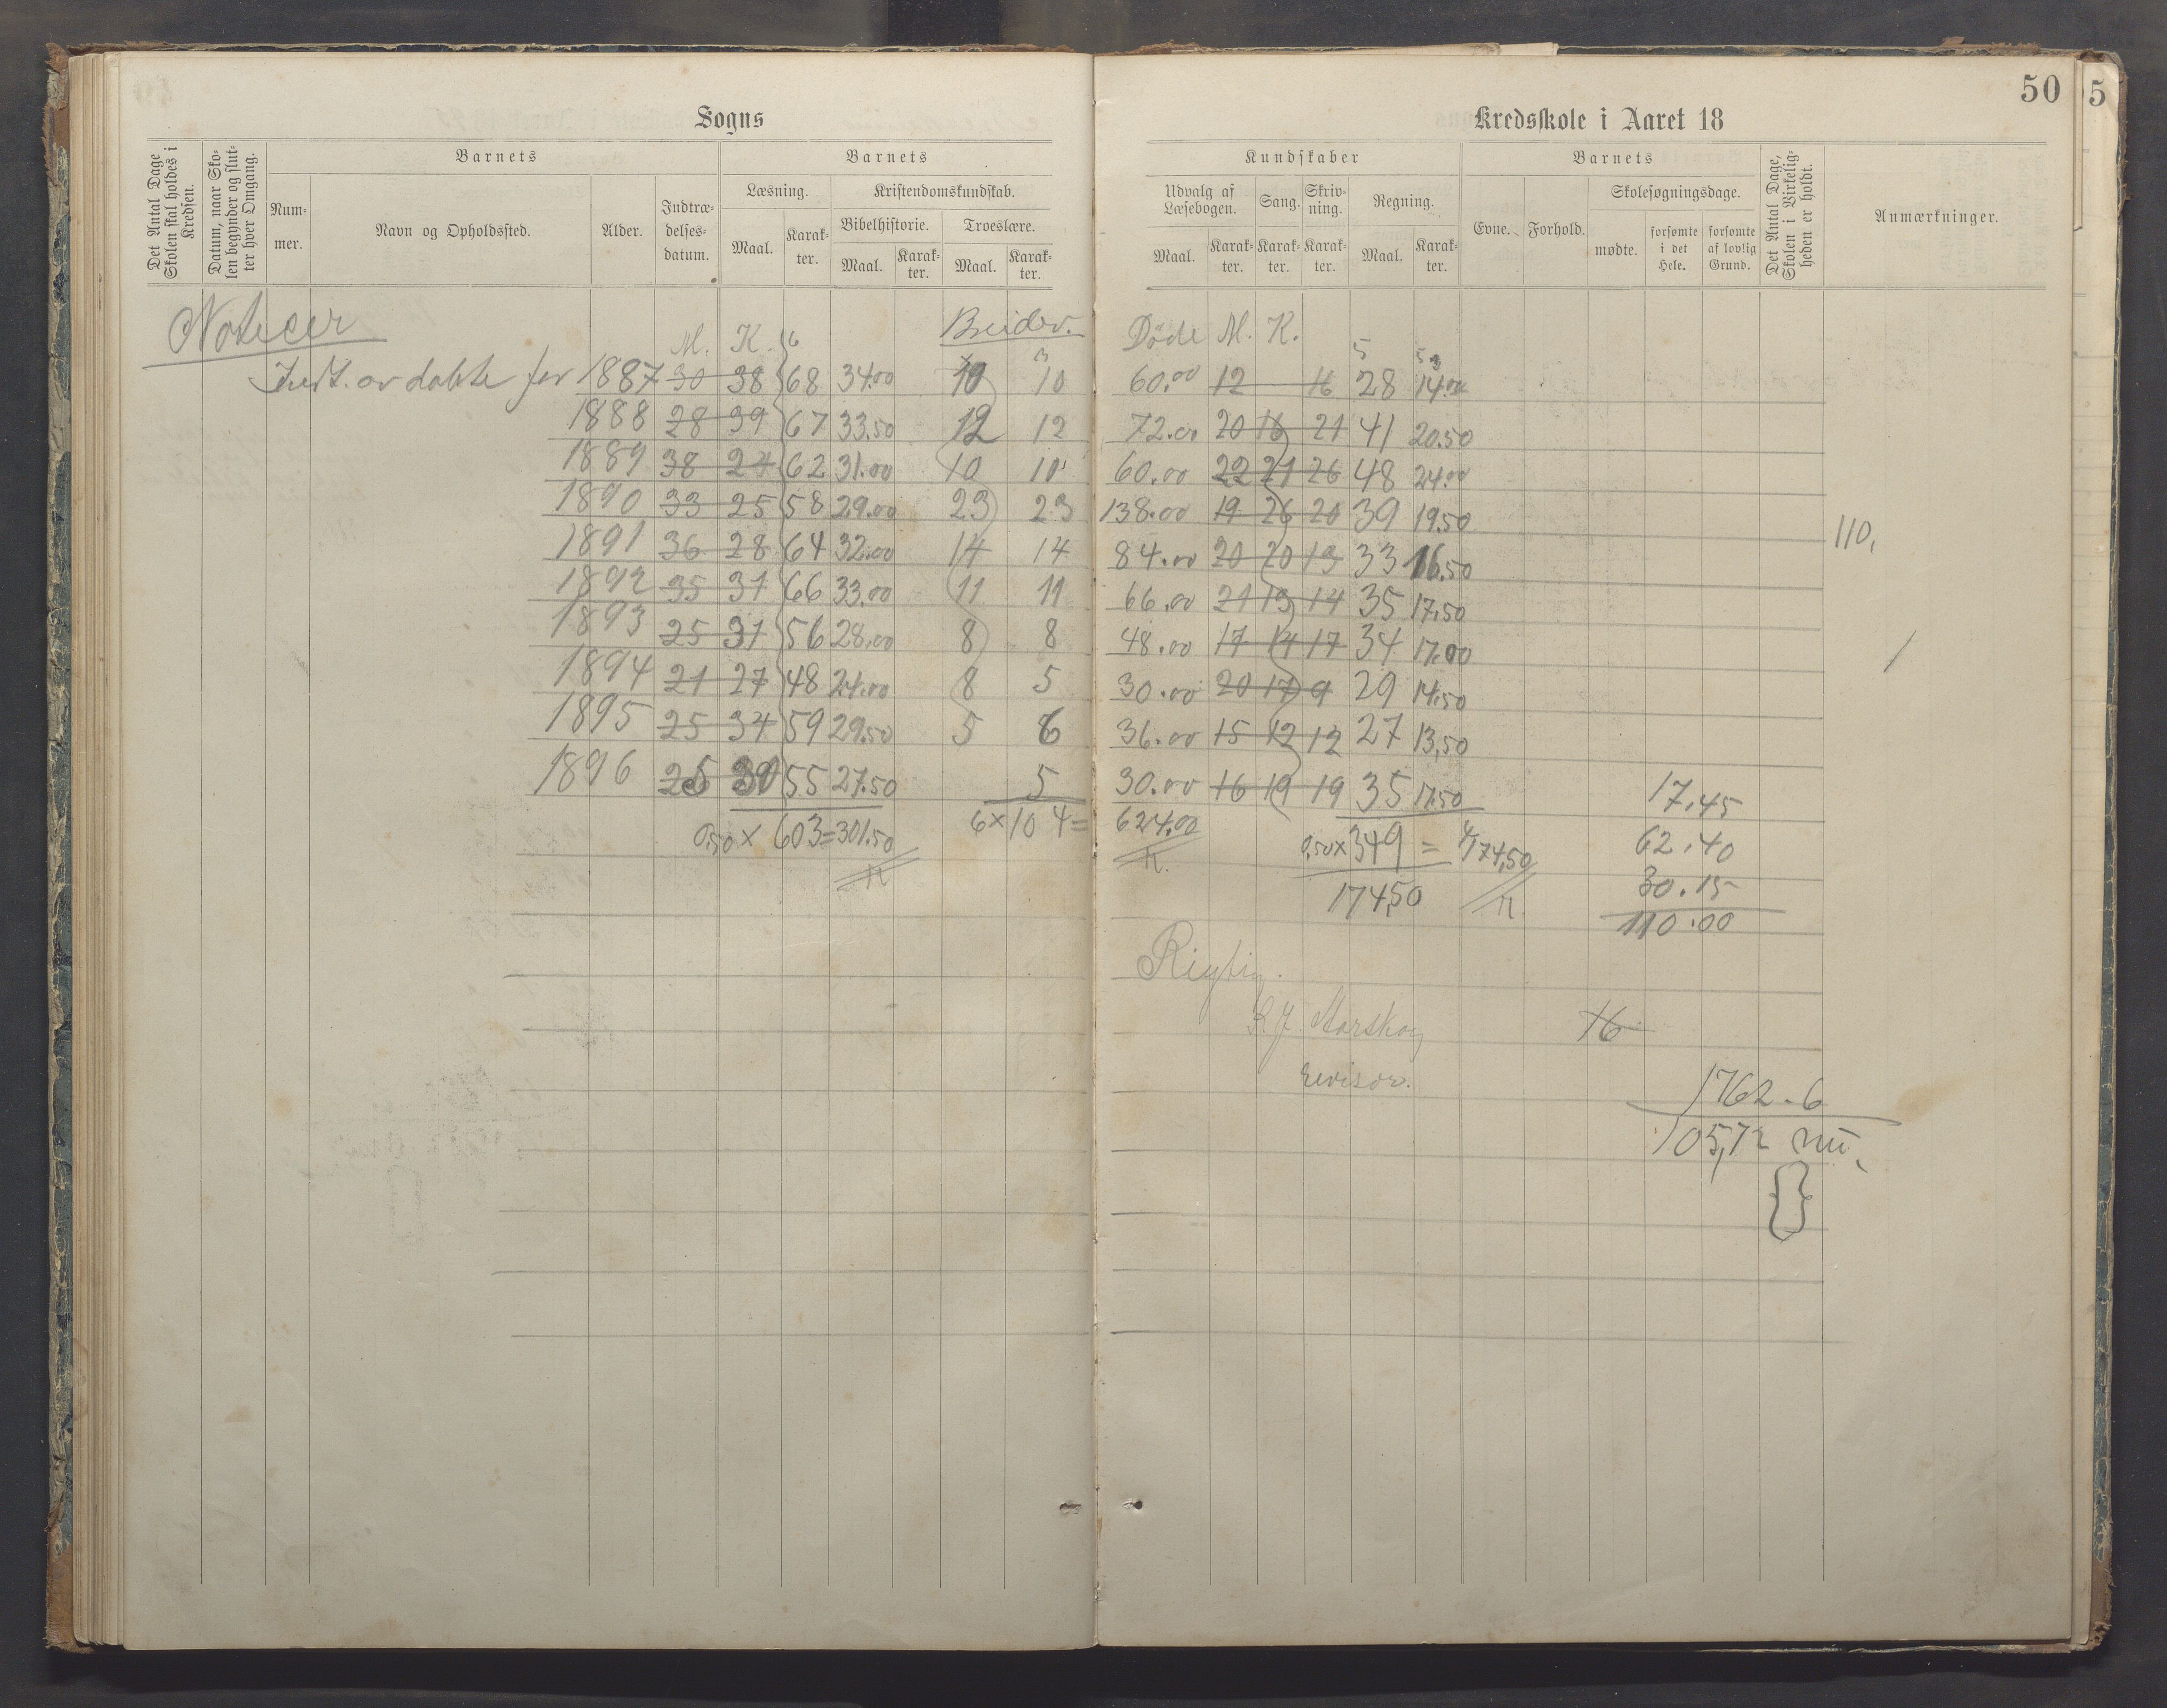 50
5
Sogns
Kredsskole i Aaret 18
Det Antal Dage Skolen skal holdes i Kredsen.
Datum, naar Skolen begynder og slutter hver Omgang.
Barnets
Num-
mer.
Navn og Opholdssted.
Alder.
Indtræ-
delses-
datum.
Barnets
Læsning.
Maal.
Karak-
ter.
Kristendomskundskab.
Bibelhistorie.
Troeslære.
Maal.
Karak-
ter.
Maal.
Karak-
ter.
Kundskaber
Udvalg af
Læsebogen.
Sang.
Skriv-
ning.
Regning.
Maal.
Karak-
ter.
Karak-
ter.
Karak-
ter.
Maal.
Karak-
ter.
Barnets
Evne.
Forhold.
Skolesøgningsdage.
mødte.
forsømte
i det
Hele.
forsømte
af lovlig
Grund.
Det Antal Dage,
Skolen i Virkelig-
heden er holdt.
Anmærkninger.
Noticer
M. K. Døde M. K.
for 1887 30 38 68 34.00 10 10 60.00 12 16 28 14.00
1888 28 39 67 33.50 12 12 72.00 20 16 21 41 20.50
1889 38 24 62 31.00 10 10 60.00 22 21 26 48 24.00
1890 33 25 58 29.00 23 23 138.00 19 26 20 39 19.50
110,
1891 36 28 64 32.00 14 14 84.00 20 20 13 33 16.50
1892 35 31 66 33.00 11 11 66.00 21 13 14 35 17.50
1893 25 31 56 28.00 8 8 48.00 17 14 17 34 17.00
1894 21 27 48 24.00 8 5 30.00 20 17 9 29 14.50
1895 25 34 59 29.50 5 6 36.00 15 12 12 27 13,50
1896 25 30 55 27.50 5 30.00 16 19 19 35 17.50
17.45
0.50 × 603 = 301.50 6 × 104 = 624.00 0,50 × 349 = 174,50
62.40
30.15
174,50
110.00
Rigtig.
Morskog
16
revisor.
1762.6
105,72